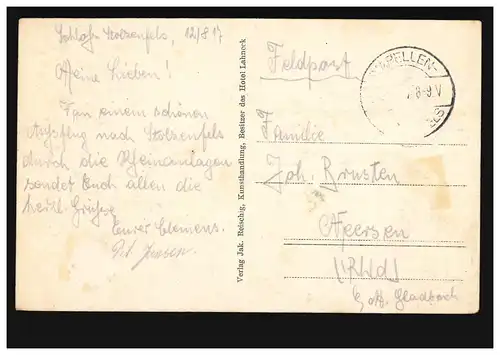 Schloss Stolzenfels, 12/8 17
Meine Lieben!
Von einem schönen
Ausflug nach Stolzenfels
durch die Rheinanlagen
sendet Euch allen die
herzl. Grüsse
Eurer Clemens.
Pet. Jansen.
Verlag Jak. Reischig, Kunsthandlung, Besitzer des Hotel Lahneck
Feldpost
CAPELLEN-
8-9 V
Familie
Joh. Brusten
Neersen
(Rhld)
b. M. Gladbach